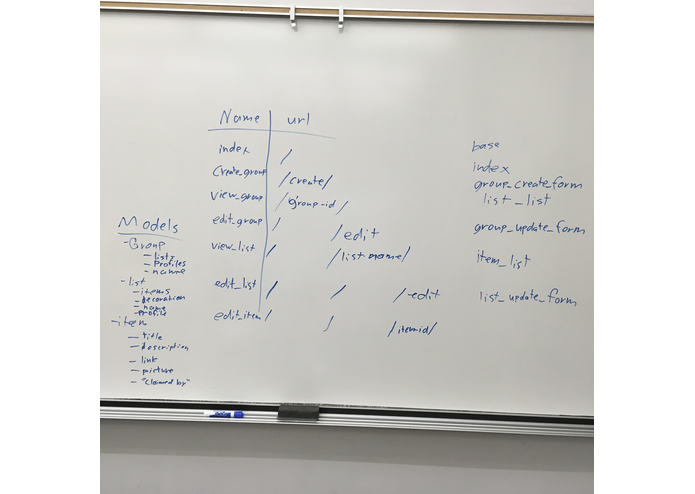 Name url
index / base
index
Create_group /create/ group_create_form
view_group /group-id/ list_list
edit_group / /edit group_update_form
view_list / /list-name/ item_list
edit_list / / /-edit list_update_form
edit_item / / /itemid/
Models
-Group
- lists
- Profiles
- name
-list
- items
- decoration
- name
- Profile
-item
- title
- description
- link
- picture
- "Claimed by"